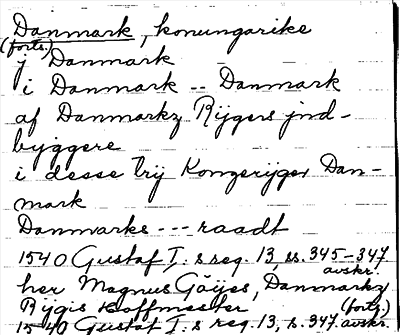 Danmark, konungarike
(forts.)
j Danmark
i Danmark -- Danmark
af Danmarkz Rijgers jnd-
byggere
i desse trij Kongerijger Dan-
mark
Danmarks --- raadt
1540 Gustaf I:s reg. 13, ss. 345-347
avskr.
her Magnus Göijes, Danmarkz
Rijgis Hoffmester
(forts.)
1540 Gustaf I:s reg. 13, s. 347. avskr.